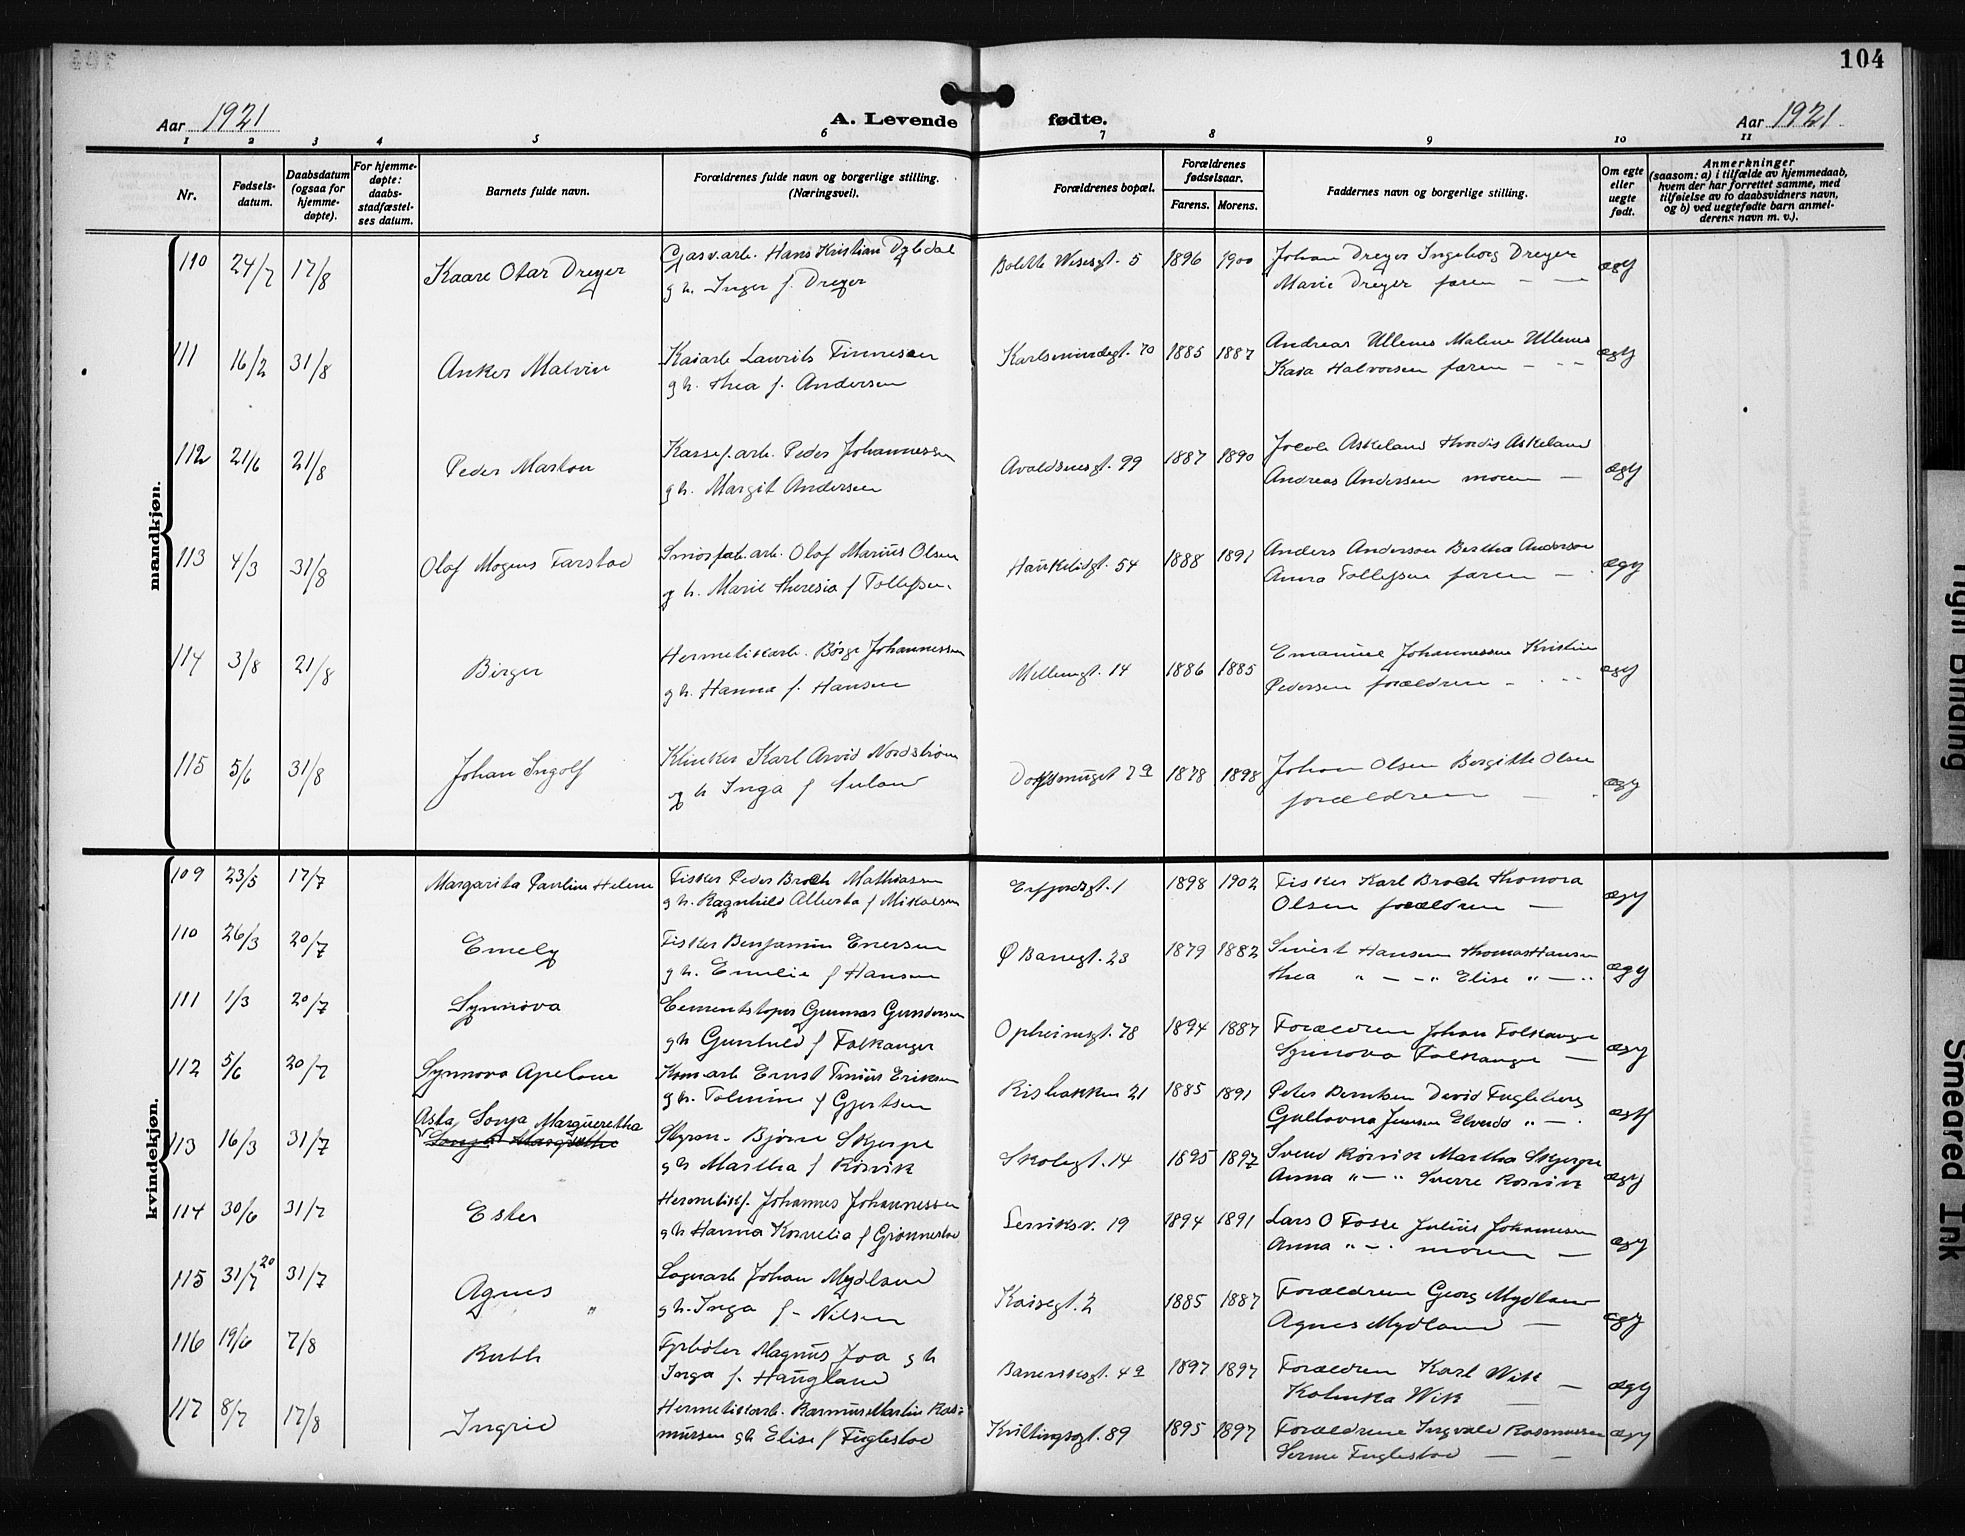 104
Aar 1921
A. Levende fødte.
Aar 1921
1 2 3 4 5 6 7 8 9 10 11
Nr.
Fødsels-
datum.
Daabsdatum
(ogsaa for
hjemme-
døpte).
For hjemme-
døpte:
daabs-
stadfæstel-
ses datum.
Barnets fulde navn.
Forældrenes fulde navn og borgerlige stilling.
(Næringsvei).
Forældrenes bopæl.
Forældrenes
fødselsaar.
Farens. Morens.
Faddernes navn og borgerlige stilling.
Om egte
eller
uegte
født.
Anmerkninger
(saasom: a) i tilfælde av hjemmedaab,
hvem der har forrettet samme, med
tilføielse av to daabsvidners navn,
og b) ved uegtefødte barn anmel-
derens navn m. v.).
mandkjøn.
110 24/7 17/8 Kaare Otar Dreyer
Gasv.arb. Hans Kristian Dybdal
g h. Inger f. Dreyer
Bolette Wiesesgt. 5 1896 1900
Johan Dreyer Ingeborg Dreyer
Marie Dreyer faren — —
ægt
111 16/2 31/8 Anker Malvin
Kaiarb Laurits Finnesen
g h. Thea f. Andersen
Karlsmindegt. 70 1885 1887
Andreas Ullenes Malene Ullenes
Kaia Halvorsen faren - - -
ægt
112 21/6 21/8 Peder Marton
Kassef.arb. Peder Johannessen
g h. Margit Andersen
Avaldsnesgt. 99 1887 1890
Jacob Askeland Thordis Askeland
Andreas Andersen moren —
ægt
113 4/3 31/8 Olaf Mogens Farstad
Smørfab.arb. Olaf Marius Olsen
g h. Marie Theresia f Tollefsen.
Haukeligt. 54 1888 1891
Anders Anderson Bertha Anderson
Anna Tollefsen faren —
ægt
114 3/8 21/8 Birger
Hermetikarb. Børge Johannessen
g h. Hanna f. Hansen
Møllegt. 14 1886 1885
Emanuel Johannessen Kristine
Pedersen forældrene - - - -
ægt
115 5/6 31/8 Johan Ingolf
Klinker Karl Arvid Nordstrøm
g h Inga f Auland
7a 1878 1898
Johan Olsen Bergitte Olsen
forældrene —
ægt
kvindekjøn.
109 23/5 17/7 Margarita Pauline Helene
Fisker Peder Broch Mathiassen
g h. Ragnhild Alberta f Mikalsen
Erfjordsgt. 1 1898 1902
Fisker Karl Broch Thonora
Olsen forældrene —
ægt
110 26/3 20/7 Emely
Fisker Benjamin Enersen
g h. Emelie f Hansen
Ø Banegt. 23 1879 1882
Sivert Hansen Thomas Hansen
Thea " — - " Elise " — "
ægt
111 1/3 20/7 Synnøva
Cementstøper Gunnar Gundersen
g h Gunhild f Falkanger
Opheimsgt. 78 1894 1887
Forældrene Johan Falkanger
Synnøva Falkanger —
ægt
112 5/6 20/7 Synnova Apelone
Komarb Ernst Tinius Eriksen
g h. Tolmine f Gjertsen
Risbakken 21 1885 1891
Peter Berntsen David Fugleberg
Jensen " — .
ægt
Asta Sonja Margueretha
113 16/3 31/7 Sonja Margrethe
Styrm. Bjarne Skjerpe
g h Martha f Rørvik
Skolegt. 14 1895 1897
Svend Rørvik Martha Skjerpe
Anna " — " Sverre Rørvik
ægt
114 30/6 31/7 Ester
Hermetikf. Johannes Johannessen
g h Hanna Kornelia f Grønnestad
Lerviksv. 19 1894 1891
Lars O Fosse Julius Johannesen
Anna " — . moren —
ægt
115 31/7 20 31/7 Agnes "
Lagerarb Johan Mydland
g h. Inga f - Nilsen
Kaisegt. 2 1885 1887
Forældrene Georg Mydland
Agnes Mydland —
ægt
116 19/6 7/8 Ruth
Fyrbøter Magnus Joa g h
Inga f. Haugland
Banevoksgt. 4a 1897 1897
Forældrene Karl Wik
Wik —
ægt
117 8/7 17/8 Ingrid
Hermetikarb. Rasmus Martin Ras-
mussen g h Elise f Fuglestad
Kvitsøgt. 89 1895 1897
Forældrene Ingvald Rasmussen
Serine Fuglestad — —
ægt
Tight Binding
Smeared Ink